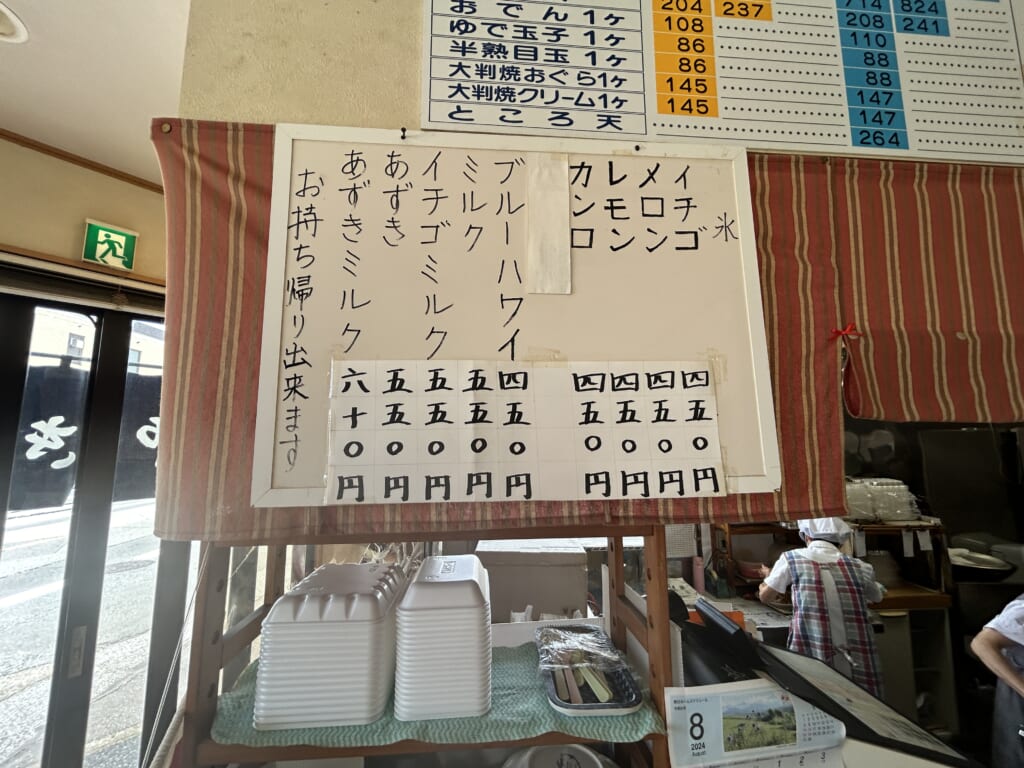 714 824
204 237 208 241
おでん1ヶ 108 110
ゆで玉子1ヶ 86 88
半熟目玉1ヶ 86 88
大判焼おぐら1ヶ 145 147
大判焼クリーム1ヶ 145 147
ところ天 264
氷
イチゴ 四五〇円
メロン 四五〇円
レモン 四五〇円
カンロ 四五〇円
ブルーハワイ 四五〇円
ミルク 五五〇円
イチゴミルク 五五〇円
あずき 五五〇円
あずきミルク 六十〇円
お持ち帰り出来ます
8
2024
August
1 2 3